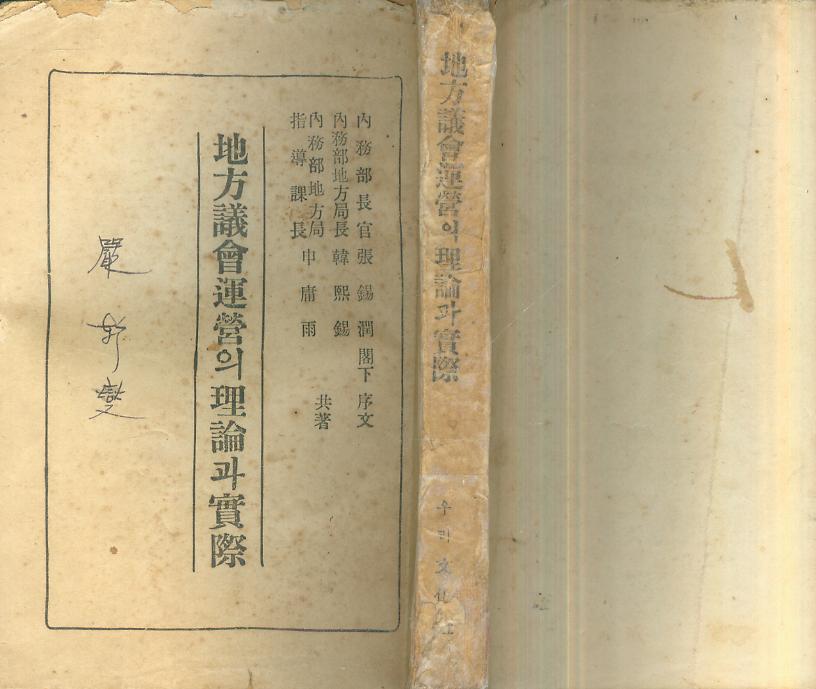 內務部長官 張錫潤 閣下 序文
內務部地方局長 韓熙錫
內務部地方局
指導課長 申庸雨
共著
地方議會運營의 理論과 實際
嚴
燮
地方議會運營의 理論과 實際
우리文化